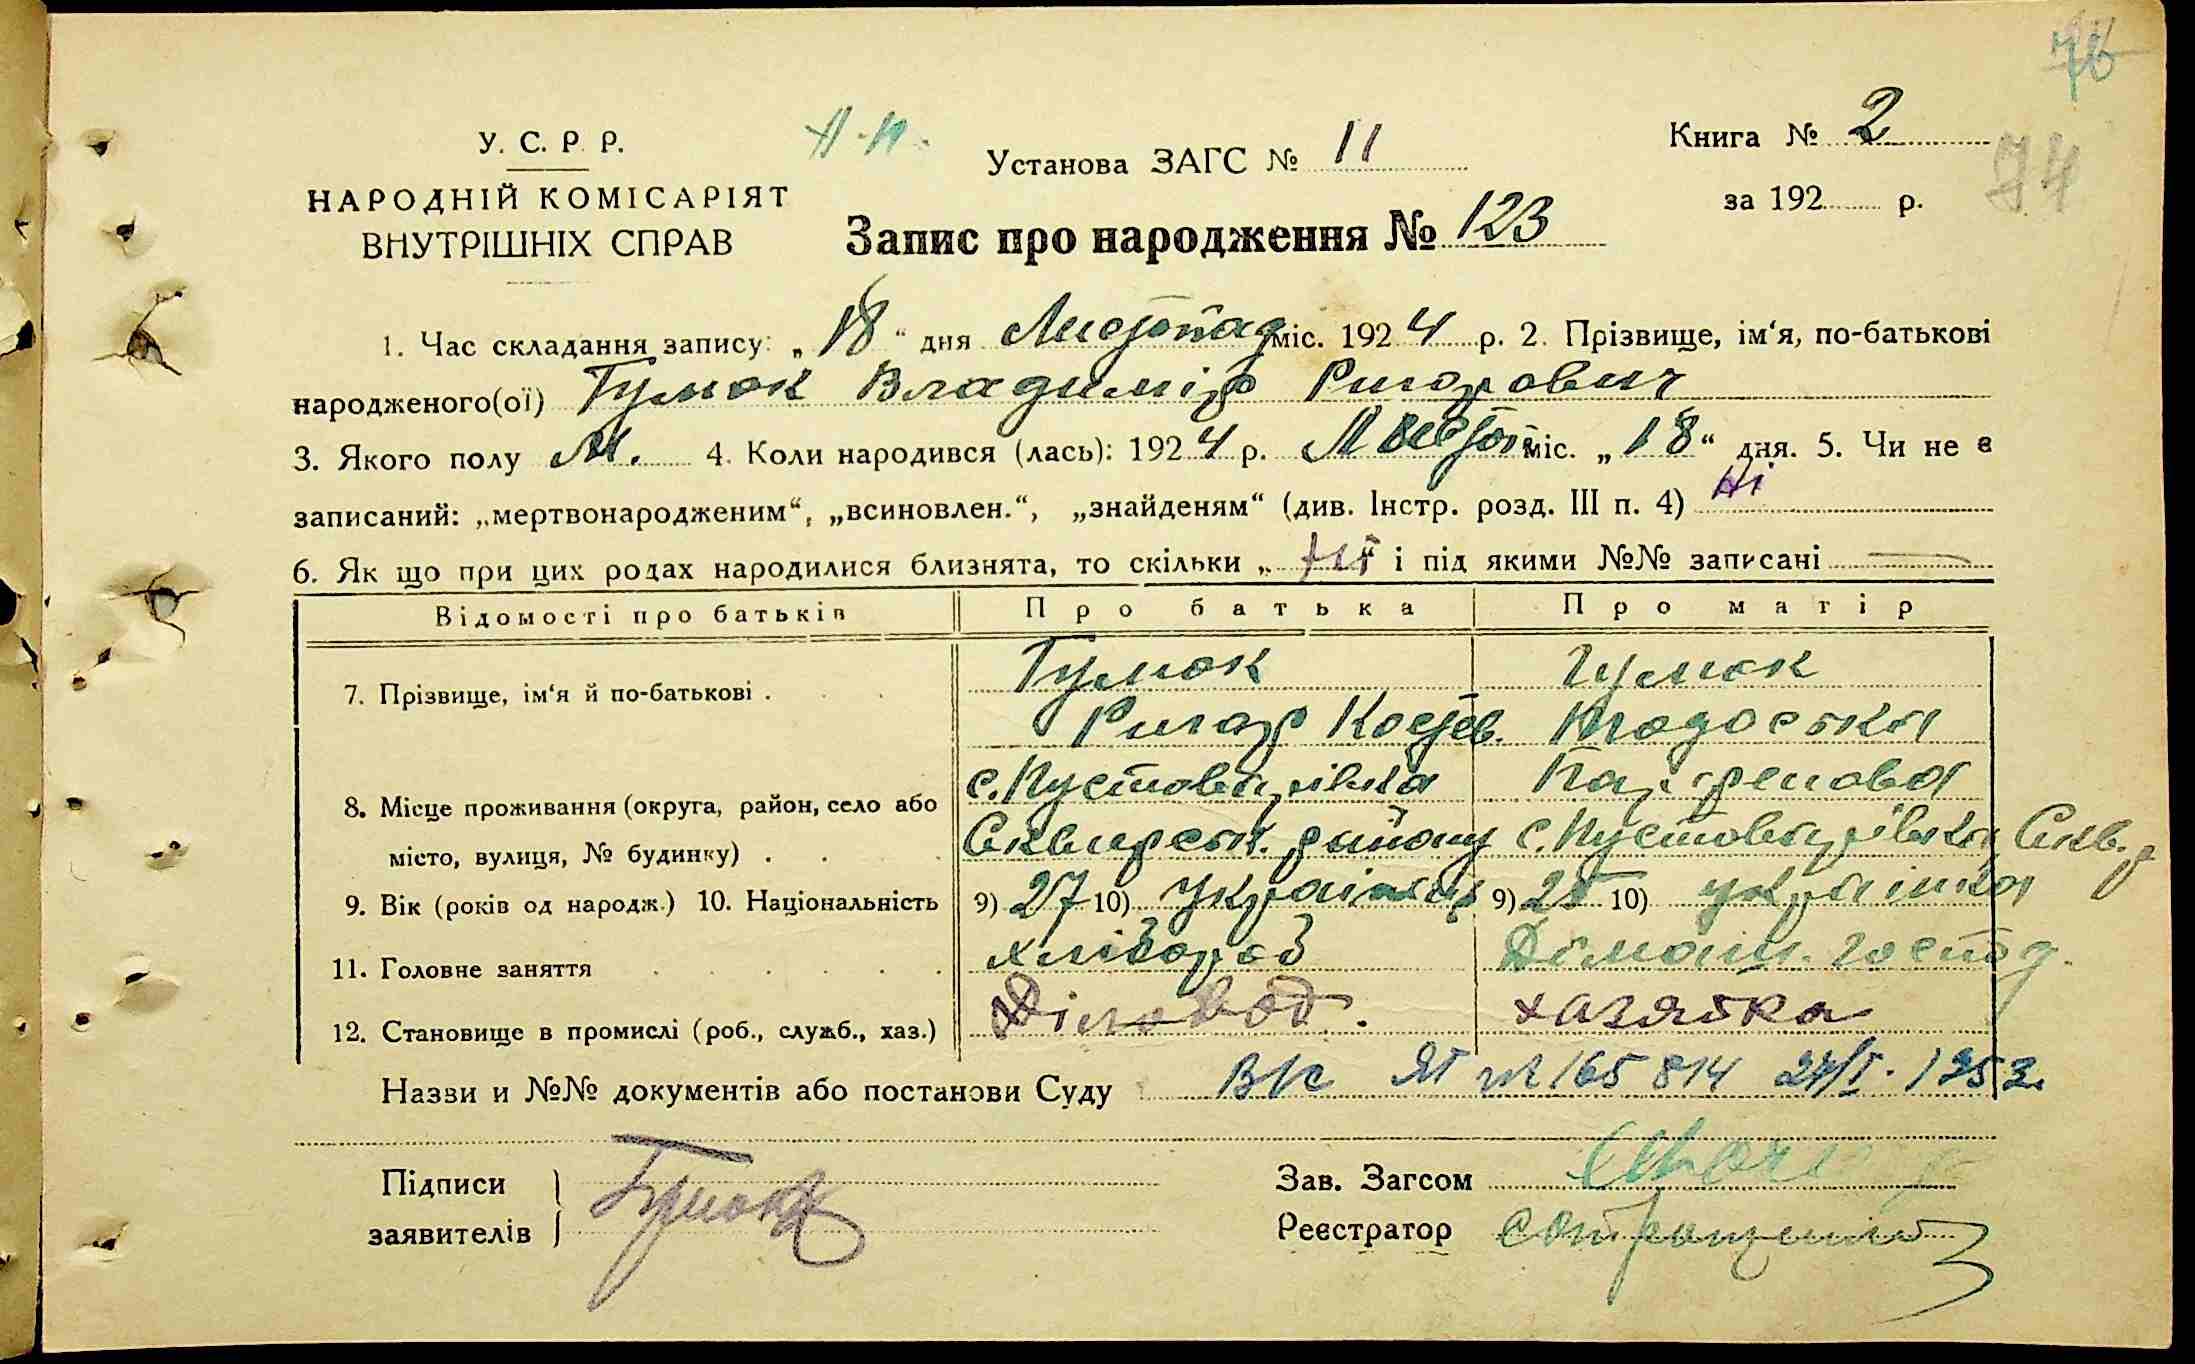 76
У. С. Р. Р.
НАРОДНІЙ КОМІСАРІЯТ
ВНУТРІШНІХ СПРАВ
Установа ЗАГС № 11
Книга № 2
за 192 р.
74
Запис про народження № 123
1. Час складання запису: „18“ дня Листопад міс. 1924 р. 2. Прізвище, ім‘я, по-батькові
народженого(ої) Гумок Владимір Ригорович
3. Якого полу М. 4. Коли народився (лась): 1924 р. Листоп міс. „18“ дня. 5. Чи не є
записаний: „мертвонародженим“, „всиновлен.“, „знайденям“ (див. Інстр. розд. III п. 4) Ні
6. Як що при цих родах народилися близнята, то скільки „ Ні “ і під якими №№ записані —
Відомості про батьків Про батька Про матір
7. Прізвище, ім‘я й по-батькові . Гумок Гумок
Ригор Костев. Тодоська
с. Пустоварівка
8. Місце проживання (округа, район, село або
місто, вулиця, № будинку) . Сквирськ. району с. Пустоварівка, Скв. р
9. Вік (років од народж.) 10. Національність 9) 27 10) Українець 9) 25 10) українка
11. Головне заняття хлібороб Домаш. господ.
12. Становище в промислі (роб., служб., хаз.) Діловод. хазяйка
Назви и №№ документів або постанови Суду ЯТ № 165814 24/I. 1953.
Підписи
заявителів Гумок
Зав. Загсом
Реєстратор